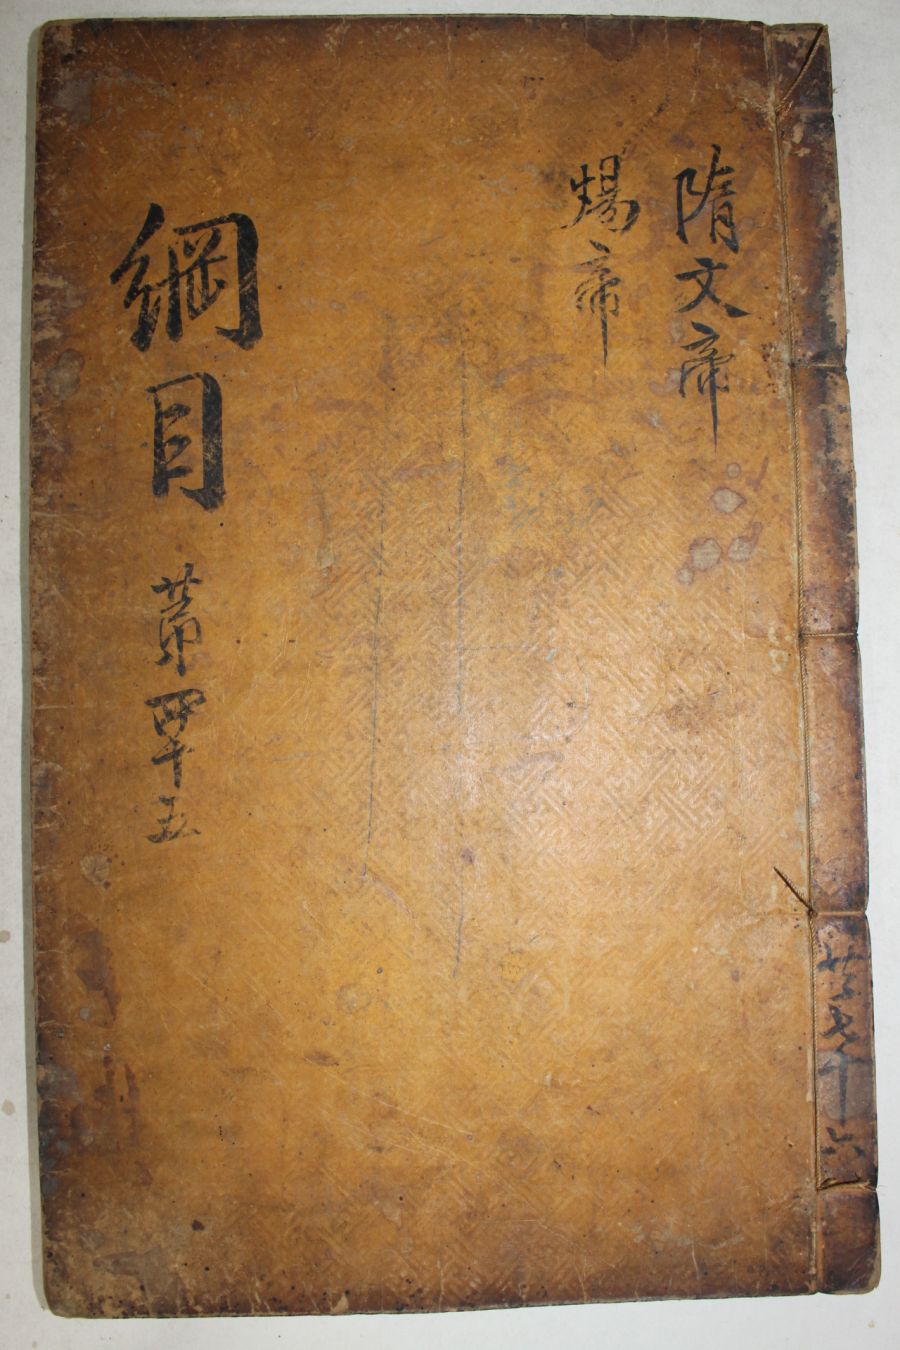 隋文帝
煬帝
綱目 苐四十五
共七十六